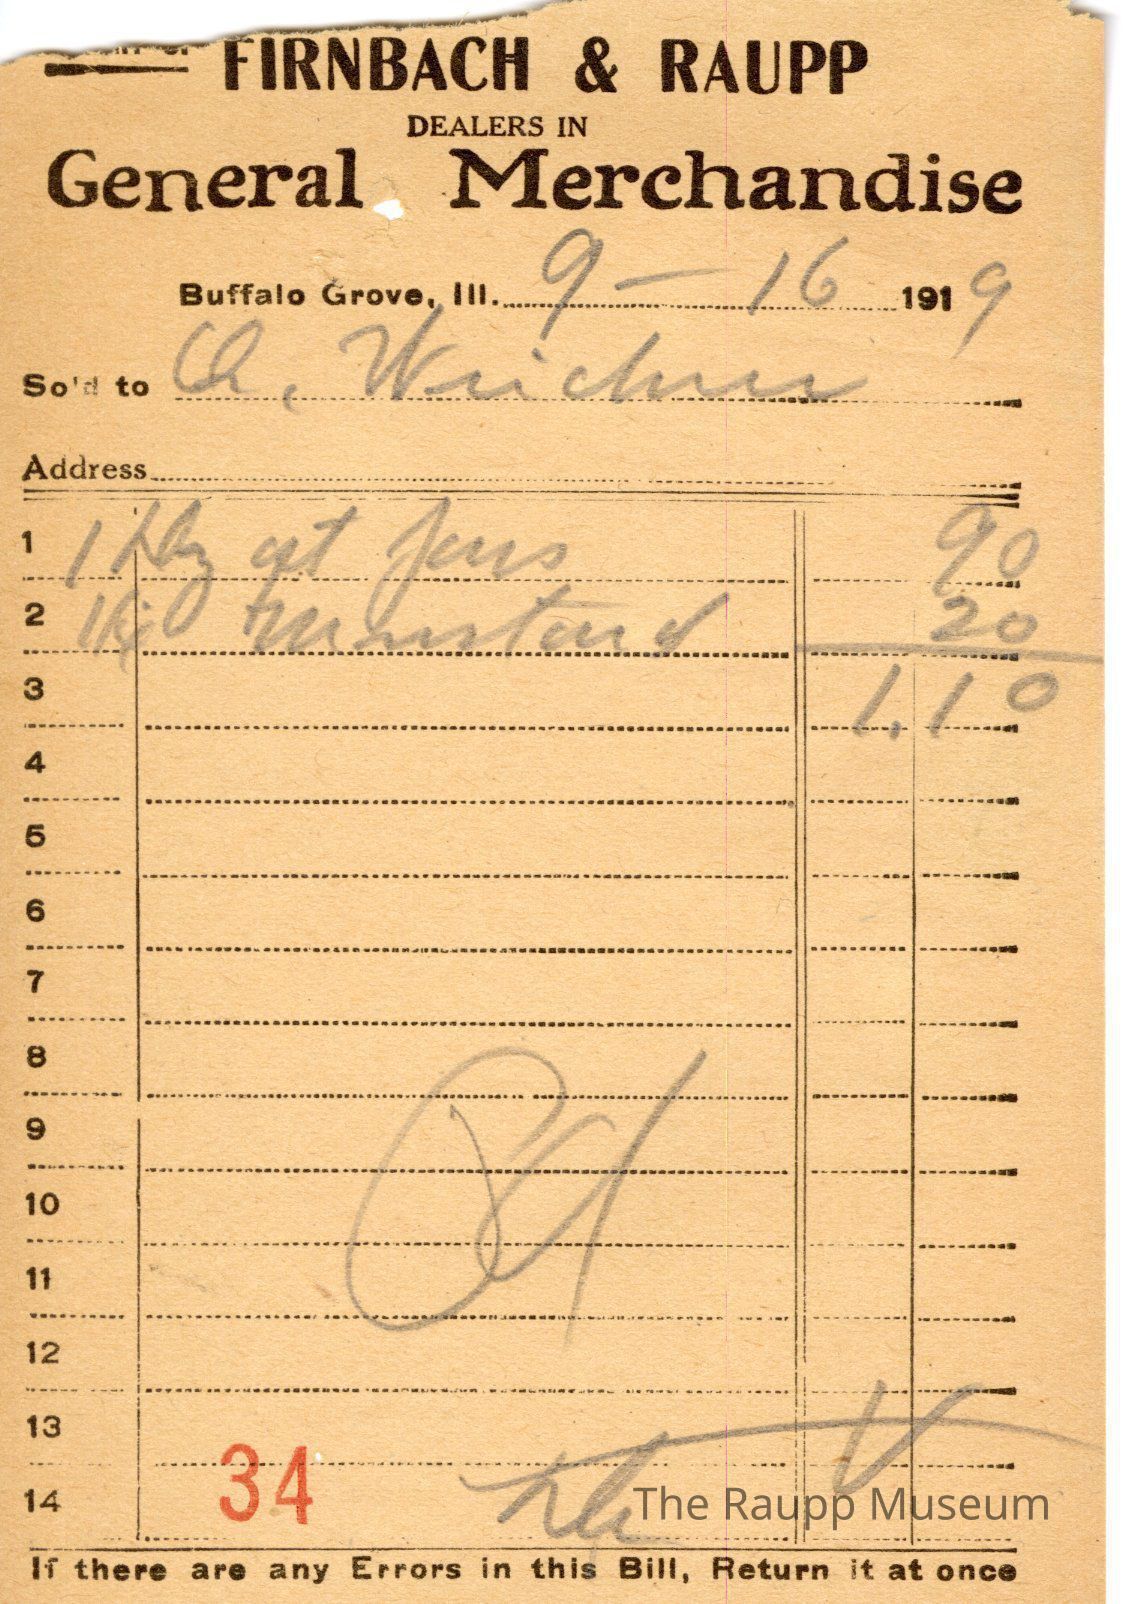 FIRNBACH & RAUPP
DEALERS IN
General Merchandise
Buffalo Grove, Ill. 9-16 1919
So'd to
Address
1 1 Dz qt Jars 90
2 Mustard 20
3 1.10
4
5
6
7
8
9
10
11
12
13
14
34
The Raupp Museum
If there are any Errors in this Bill, Return it at once